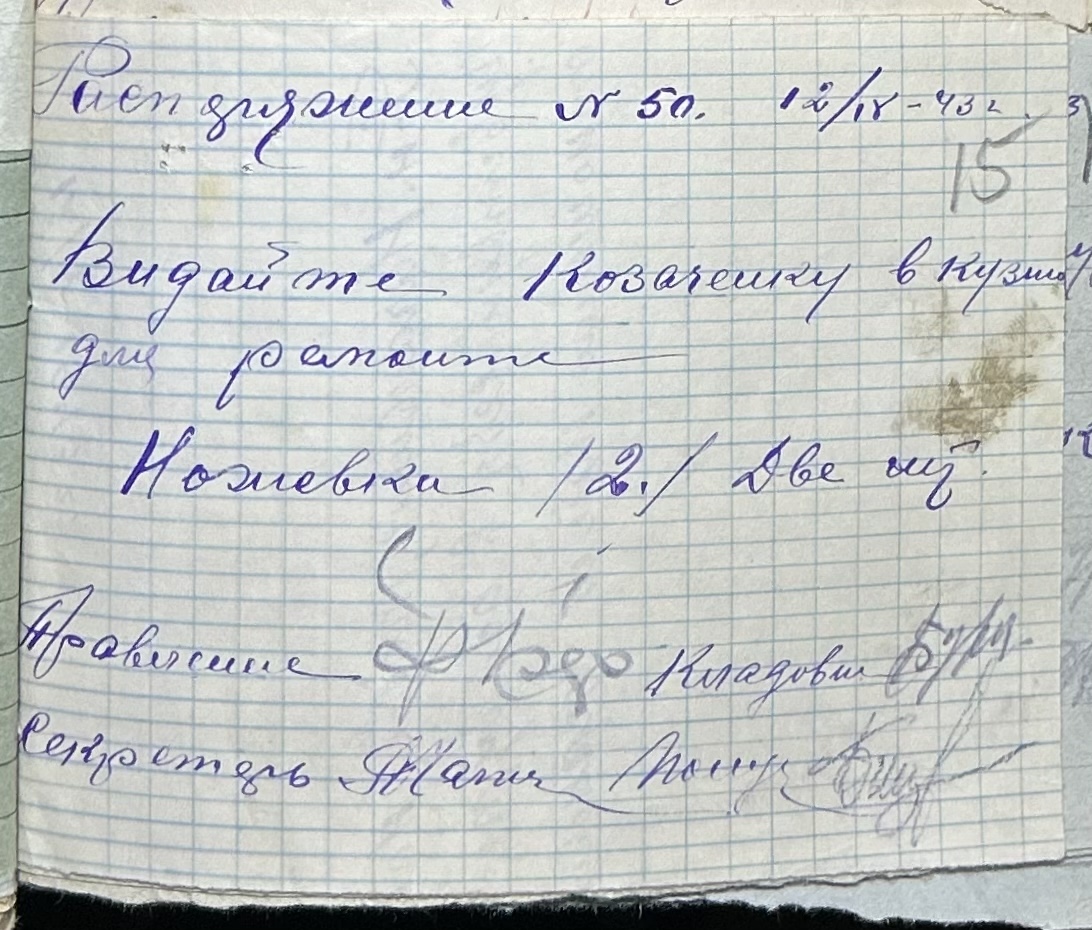 Распоряжение № 50. 12/IX-43 г.
15
Видайте Козаченку в кузню
для ремонте
Ножевка /2./ Две шт.
Правление Кладовщ
Секретарь